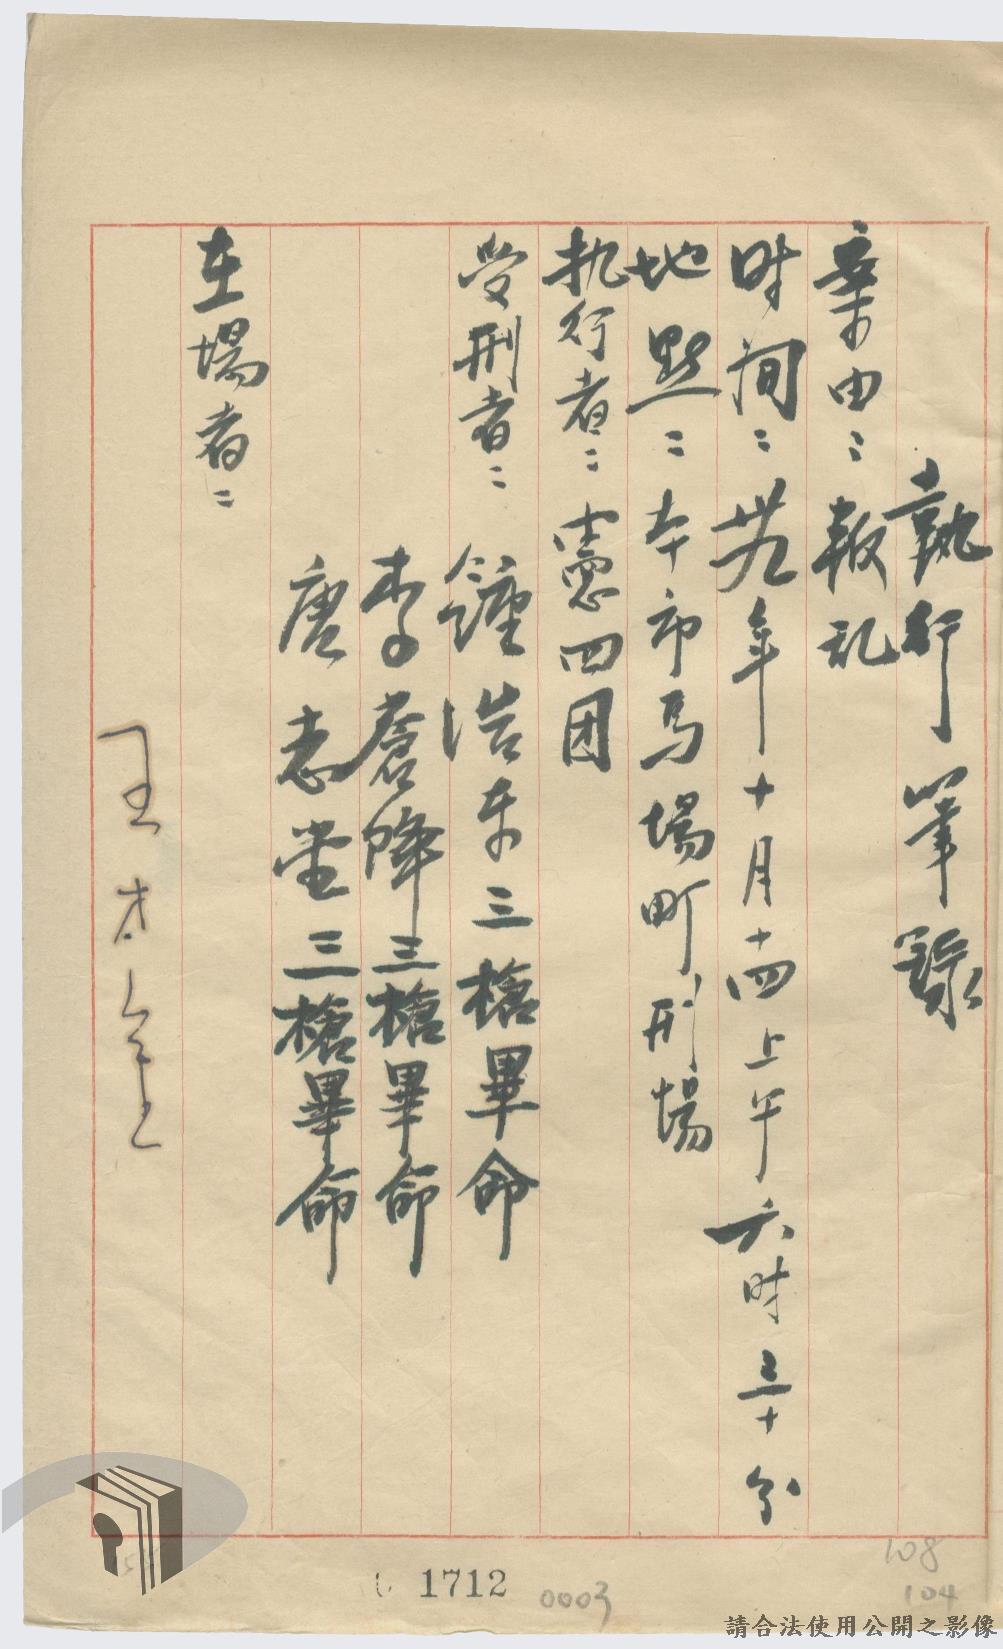 執行筆錄
案由：叛乱
时间：卅九年十月十四上午六时三十分
地點：本市馬場町刑場
执行者：憲四団
受刑者：鍾浩东三槍畢命
李蒼降三槍畢命
唐志堂三槍畢命
在場者：
1712
0003
108
104
請合法使用公開之影像